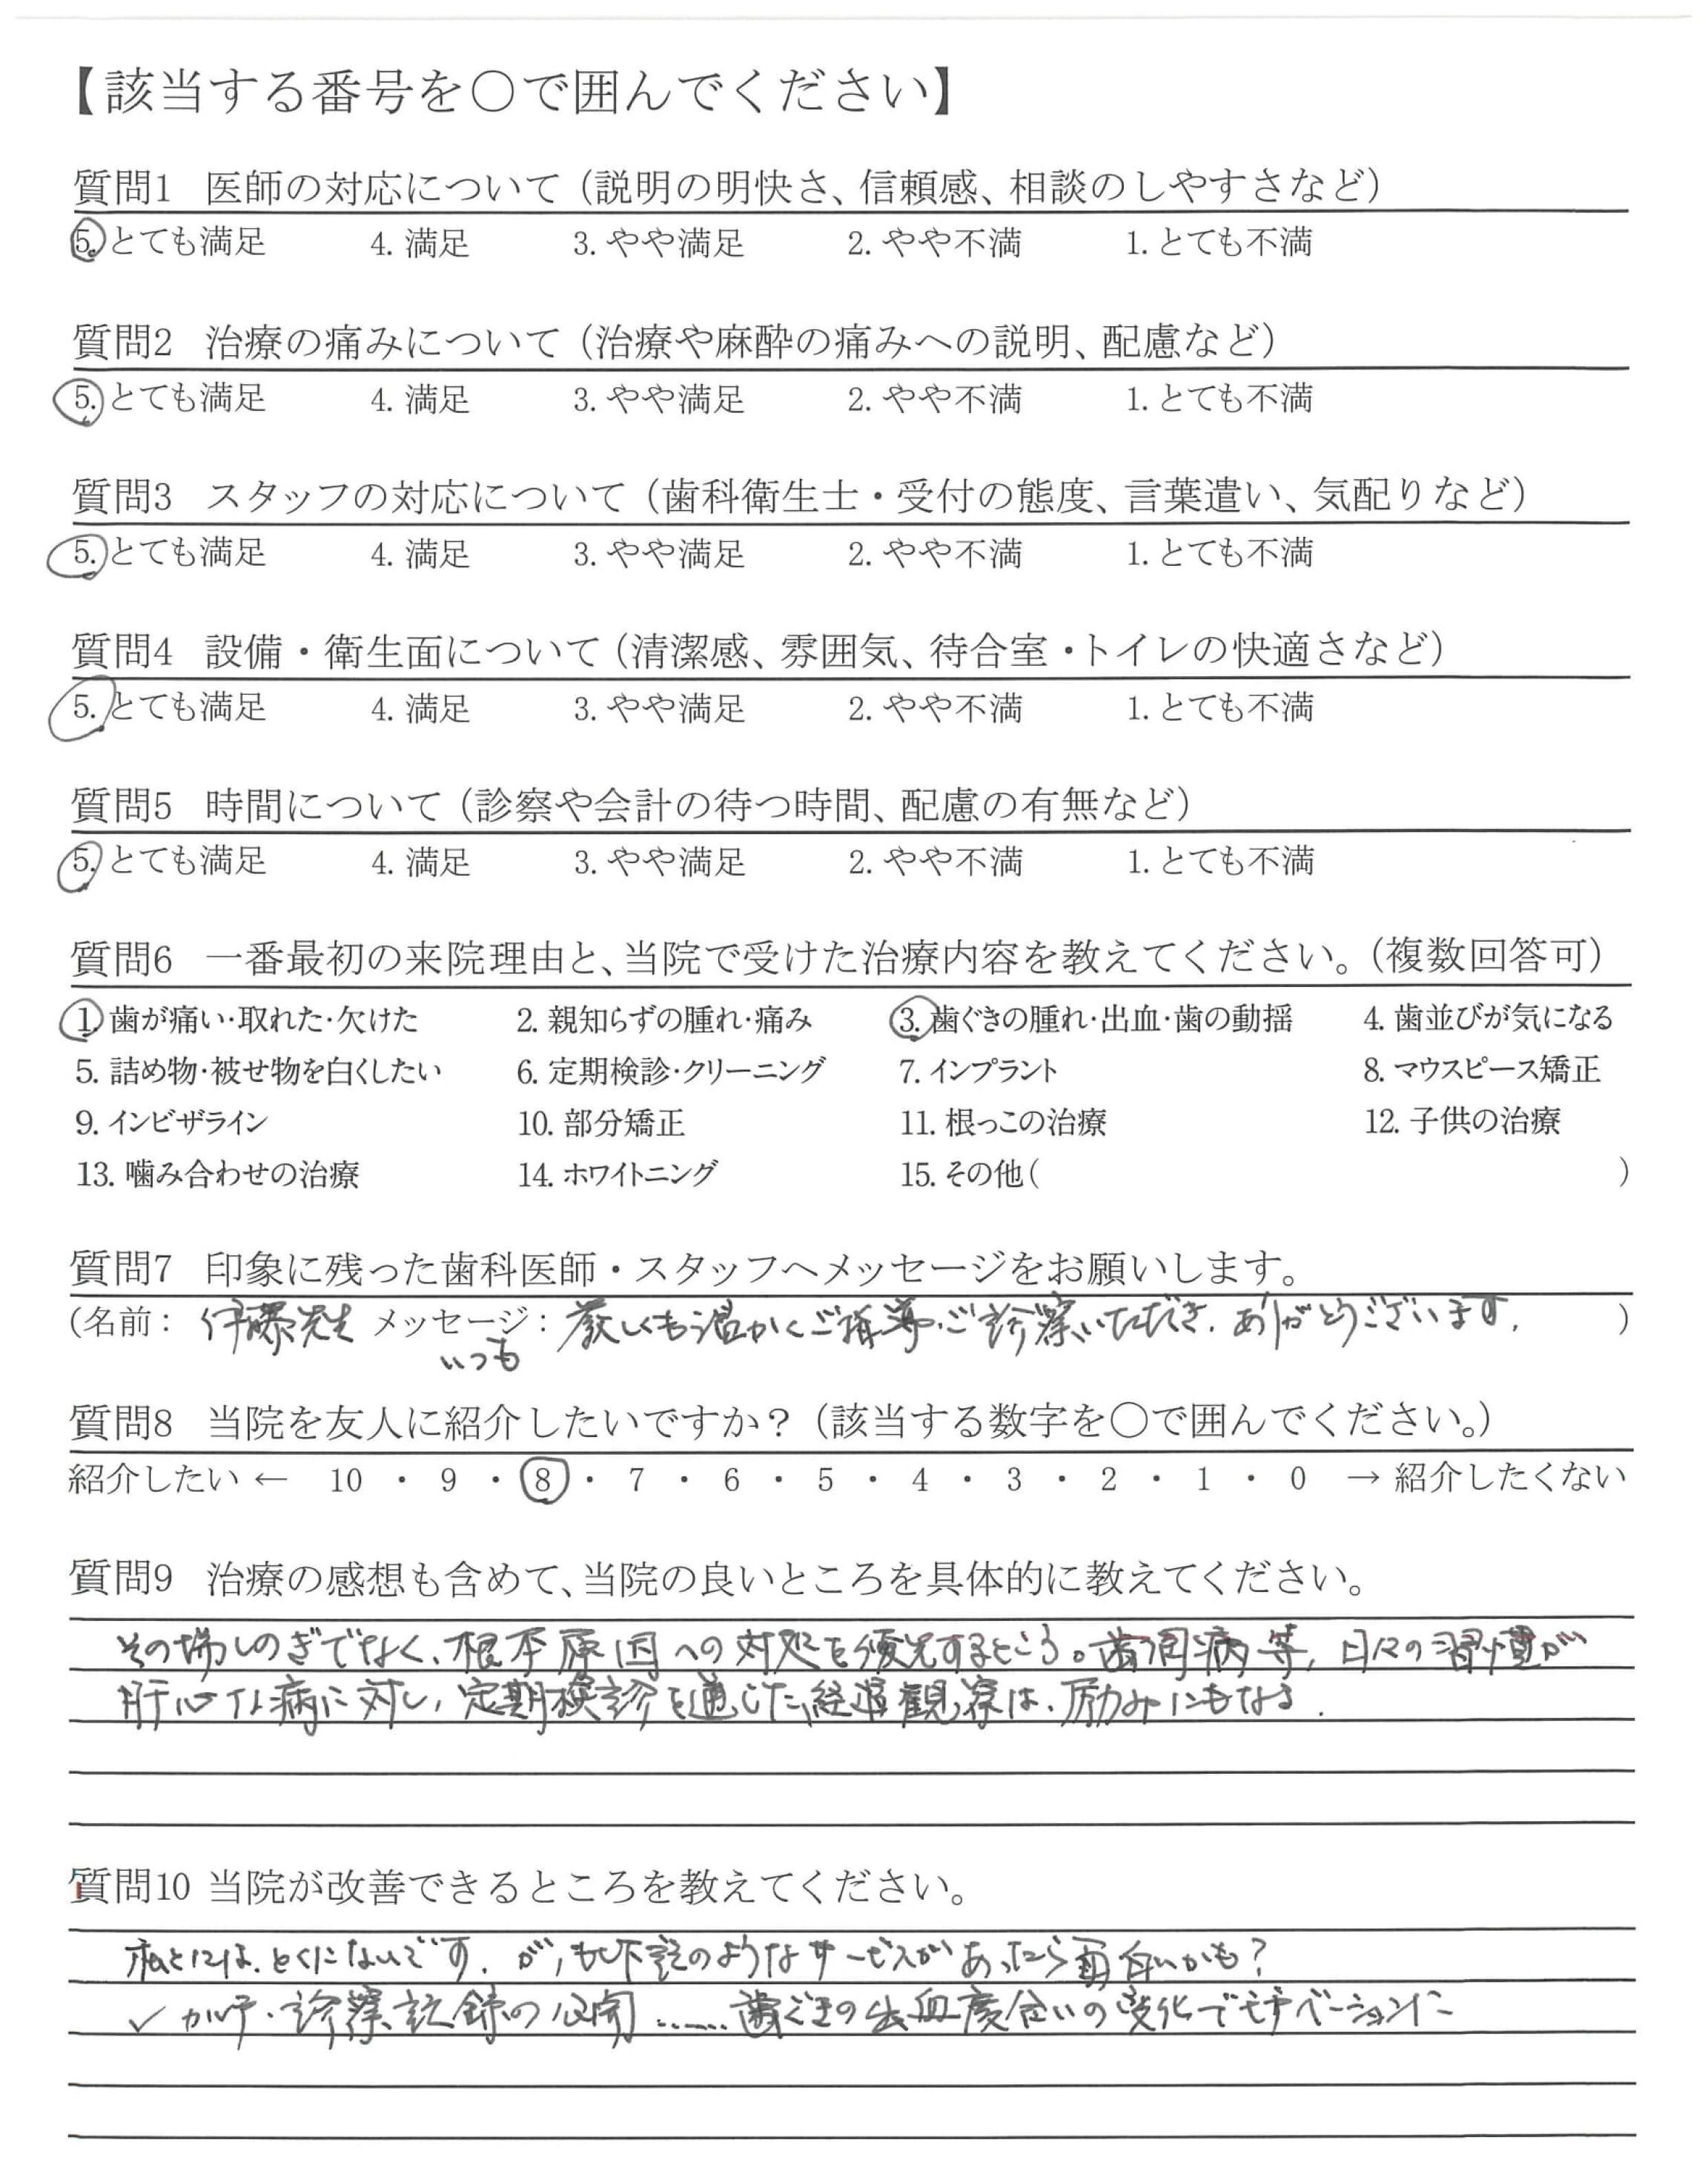 【該当する番号を○で囲んでください】
質問1 医師の対応について（説明の明快さ、信頼感、相談のしやすさなど）
5. とても満足 4. 満足 3. やや満足 2. やや不満 1. とても不満
質問2 治療の痛みについて（治療や麻酔の痛みへの説明、配慮など）
5. とても満足 4. 満足 3. やや満足 2. やや不満 1. とても不満
質問3 スタッフの対応について（歯科衛生士・受付の態度、言葉遣い、気配りなど）
5. とても満足 4. 満足 3. やや満足 2. やや不満 1. とても不満
質問4 設備・衛生面について（清潔感、雰囲気、待合室・トイレの快適さなど）
5. とても満足 4. 満足 3. やや満足 2. やや不満 1. とても不満
質問5 時間について（診察や会計の待つ時間、配慮の有無など）
5. とても満足 4. 満足 3. やや満足 2. やや不満 1. とても不満
質問6 一番最初の来院理由と、当院で受けた治療内容を教えてください。（複数回答可）
1. 歯が痛い・取れた・欠けた 2. 親知らずの腫れ・痛み 3. 歯ぐきの腫れ・出血・歯の動揺 4. 歯並びが気になる
5. 詰め物・被せ物を白くしたい 6. 定期検診・クリーニング 7. インプラント 8. マウスピース矯正
9. インビザライン 10. 部分矯正 11. 根っこの治療 12. 子供の治療
13. 噛み合わせの治療 14. ホワイトニング 15. その他（ ）
質問7 印象に残った歯科医師・スタッフへメッセージをお願いします。
（名前： 伊藤先生 メッセージ： 厳しくも温かくご指導・ご診察いただき、ありがとうございます。 ）
いつも
質問8 当院を友人に紹介したいですか？（該当する数字を○で囲んでください。）
紹介したい ← 10 ・ 9 ・ 8 ・ 7 ・ 6 ・ 5 ・ 4 ・ 3 ・ 2 ・ 1 ・ 0 → 紹介したくない
質問9 治療の感想も含めて、当院の良いところを具体的に教えてください。
その場しのぎでなく、根本原因への対処を優先するところ。歯周病等、日々の習慣が
肝心な病に対し、定期検診を通じた経過観察は、励みにもなる。
質問10 当院が改善できるところを教えてください。
私とには、とくにないです。が、も下記のようなサービスがあったら面白いかも？
✓ カルテ・診察記録の公開……歯ぐきの出血度合いの変化でモチベーションに